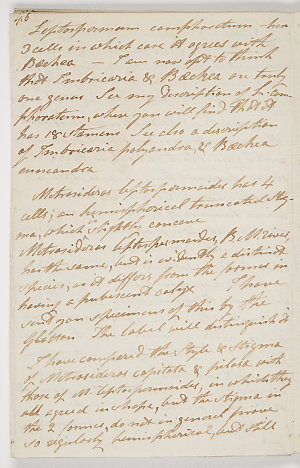 Leptospermum camphoratum - has
3 cells in which case it agrees with
Bæckea — I am now apt to think
that Imbricaria & Bæckea are truly
one genus. See my description of L. cam-
phoratum, where you will find that it
has 18 stamens See also a description
of Imbricaria polyandra, & Bæckea
Metrosideros leptospermoides has 4
cells; an hemispherical truncated stig-
ma, which slightly concave
Metrosideros leptospermoides, B. M. River,
has the same, and is evidently a distinct
species, as it differs from the former in
having a pubescent calyx I have
sent you specimens of this by the
Glatton. The label will distinguish it
I have compared the Style & Stigma
of Metrosideros capitata & pilosa with
those of M. leptospermoides, in which they
all agreed in shape, but the stigma in
the 2 former, do not in general prove
so regularly hemispherical, and still